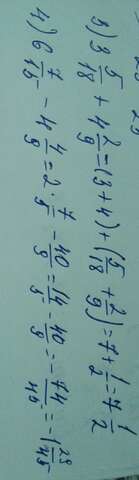 3) 3 5/18 + 4 2/9 = (3 + 4) + (5/18 + 2/9) = 7 + 1/2 = 7 1/2
4) 6 7/15 - 4 4/9 = 2 · 7/5 - 40/9 = 14/5 - 40/9 = - 74/45 = -1 29/45